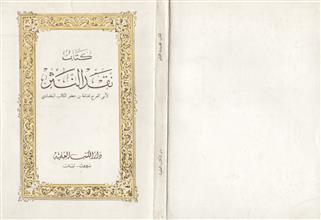 كتاب
نقد النثر
لأبي الفرج قدامة بن جعفر الكاتب البغدادي
دار الكتب العلمية
بيروت - لبنان
كتاب نقد النثر
دار الكتب العلمية